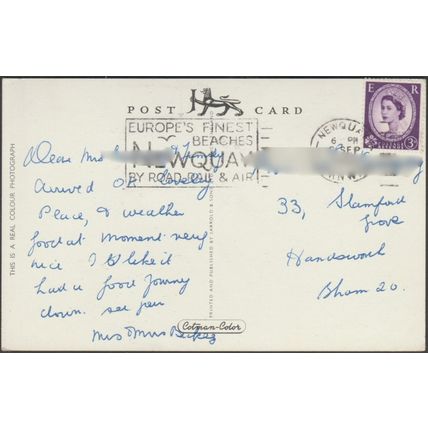 POST CARD
E R
3D
EUROPE'S FINEST
BEACHES
NEWQUAY
BY ROAD RAIL & AIR
NEWQUAY
6 PM
SEP
Dear Mrs
Arrived OK lovely
Peace, & weather
good at moment very
nice I like it
had a good Journey
down. see you
Mrs Mrs
33, Stamford
Grove
Handsworth
Bham 20.
THIS IS A REAL COLOUR PHOTOGRAPH
PRINTED AND PUBLISHED BY JARROLD & SONS
Cotman-Color